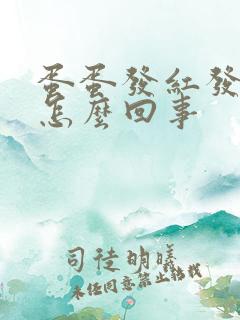 蛋蛋發紅發
怎麼回事
司徒明曦
未经同意禁止转载